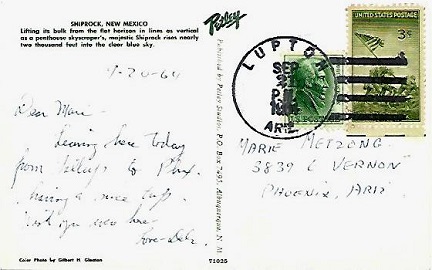 SHIPROCK, NEW MEXICO
Lifting its bulk from the flat horizon in lines as vertical
as a penthouse skyscraper's, majestic Shiprock rises nearly
two thousand feet into the clear blue sky.
9-20-64
Dear Marie -
Leaving here today
from to Phx.
Having a nice
Wish you were here -
Love -
Color Photo by Gilbert H.
Petley
Published by Petley Studios, P.O. Box 7493, Albuquerque, N. M.
71025
LUPTON
SEP
PM
ARIZ.
U.S. POSTAGE
UNITED STATES POSTAGE
3¢
MARIE METZONG
3839 E VERNON
PHOENIX, ARIZ.